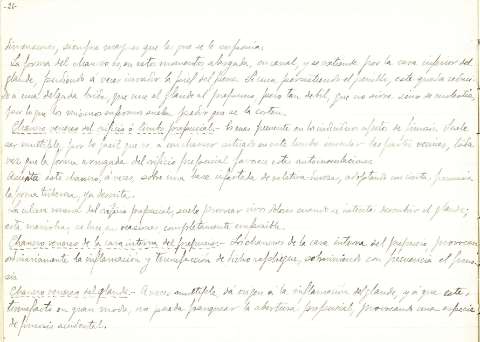 -26-
dimensiones, siempre mayores que las que se le suponía.
La forma del chancro es, en estos momentos, alargada, en canal, y se extiende por la cara inferior del
glande, pudiendo a veces invadir la piel del pene. Si cura persistiendo el frenillo, este queda reduci-
do a una delgada brida, que une el glande al prepucio pero tan débil, que no sirve, sino de molestia,
por lo que los mismos enfermos suelen pedir que se la corten.
Chancro venereo del orificio ó limbo prepucial.- Es mas frecuente en los individuos afectos de fimosis. Suele
ser multiple, por lo facil que es a un chancro situado en este limbo inocular las partes vecinas, toda
vez que la forma arrugada del orificio prepucial favorece estas autoinoculaciones.
Asienta este chancro, á veces, sobre una base infartada de relativa dureza, adoptando en cierta, frecuencia
la forma tuberosa, ya descrita.
La ulcera venerea del orificio prepucial, suele provocar vivo dolor cuando se intenta descubrir el glande;
esta maniobra, es hay en ocasiones, completamente imposible.
Chancro venereo de la cara interna del prepucio.- Los chancros de la cara interna del prepucio, provocan
ordinariamente la inflamación y tumefacción de dicho repliegue, sobreviniendo con frecuencia el fimo-
sis.
Chancro venereo del glande.- A veces multiple, dá origen a la inflamación del glande, y á que este
tumefacto en gran modo, no pueda franquear la abertura prepucial, provocando una especie
de fimosis accidental.